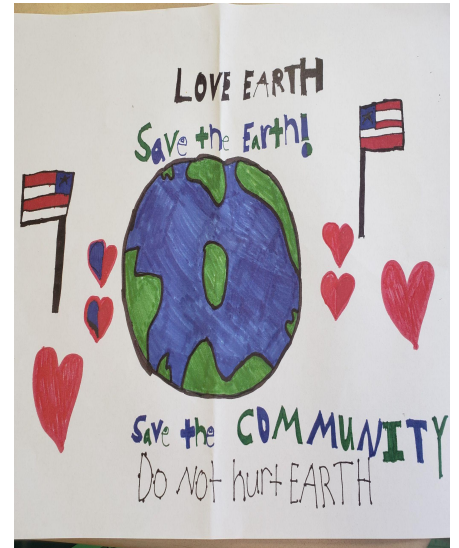 LOVE EARTH
Save the Earth!
Save the COMMUNITY
Do Not hurt EARTH